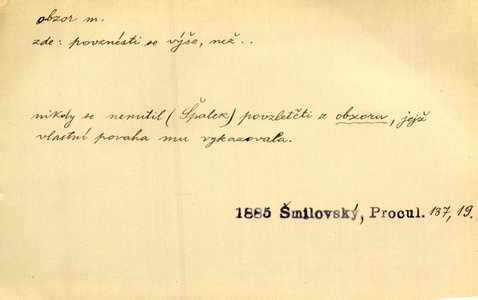 obzor m.
zde: povznésti se výše, než..
nikdy se nenutil (Špalek) povzletěti z obzoru, jejž
vlastní povaha mu vykazovala.
1885 Šmilovský, Procul. 137, 19.